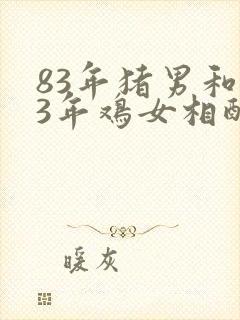 83年猪男和
3年鸡女相配
暖灰